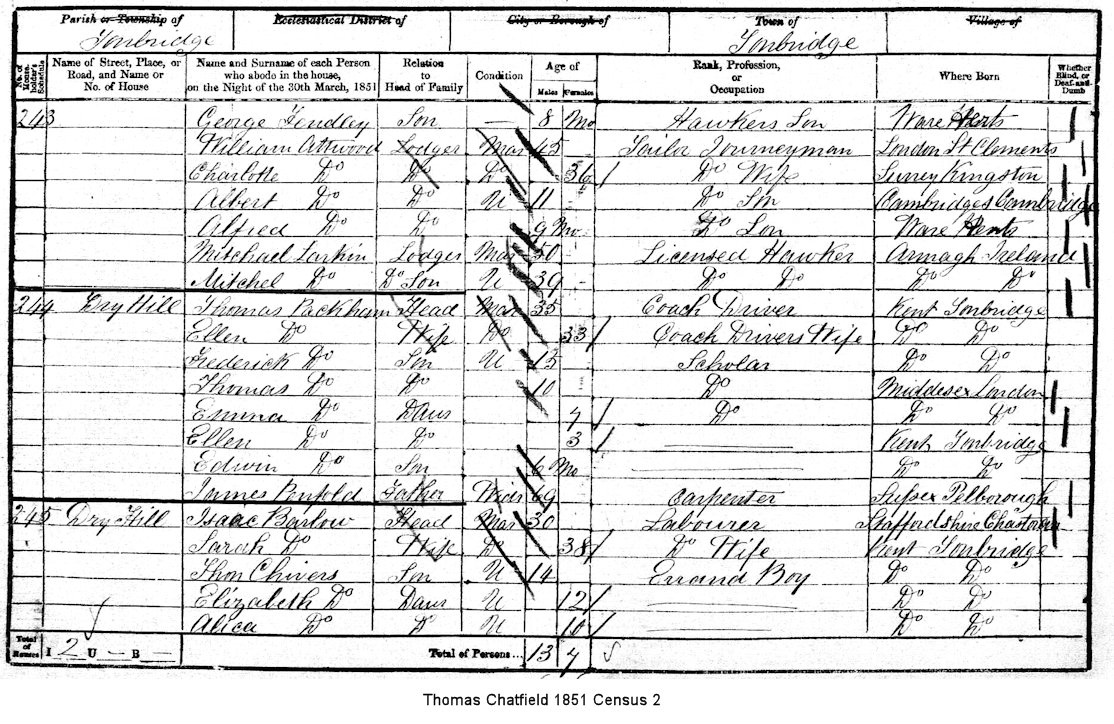 Parish or Township of Ecclesiastical District of City or Borough of Town of Village of
Tonbridge Tonbridge
No. of House-holder's Schedule Name of Street, Place, or Road, and Name or No. of House Name and Surname of each Person who abode in the house, on the Night of the 30th March, 1851 Relation to Head of Family Condition Age of Males Females Rank, Profession, or Occupation Where Born Whether Blind, or Deaf-and-Dumb
243 George Fendley Son — 8 Mo Hawkers Son Ware
William Attwood Lodger Mar 45 Tailor Journeyman London St Clements
Charlotte Do Do Do 36 Do Wife Surrey Kingston
Albert Do Do U 11 Do Son Cambridges Cambridge
Alfred Do Do 9 Mo Do Son Ware
Mitchael Larkin Lodger Mar 50 Licensed Hawker Armagh Ireland
Mitchel Do Do Son U 39 Do Do Do Do
244 Dry Hill Thomas Packham Head Mar 35 Coach Driver Kent Tonbridge
Ellen Do Wife Do 33 Coach Drivers Wife Do Do
Frederick Do Son U 13 Scholar Do Do
Thomas Do Do 10 Do Middesex London
Emma Do Daur 7 Do Do Do
Ellen Do Do 3 Kent Tonbridge
Edwin Do Son 6 Mo Do Do
James Penfold Father Wid 69 Carpenter Sussex Pelborough
245 Dry Hill Isaac Barlow Head Mar 30 Labourer Staffordshire
Sarah Do Wife Do 38 Do Wife Kent Tonbridge
Thos Chivers Son U 14 Errand Boy Do Do
Elizabeth Do Daur U 12 Do Do
Alica Do Do U 10 Do Do
Total of Houses I 2 U — B — Total of Persons ... 13 7
Thomas Chatfield 1851 Census 2